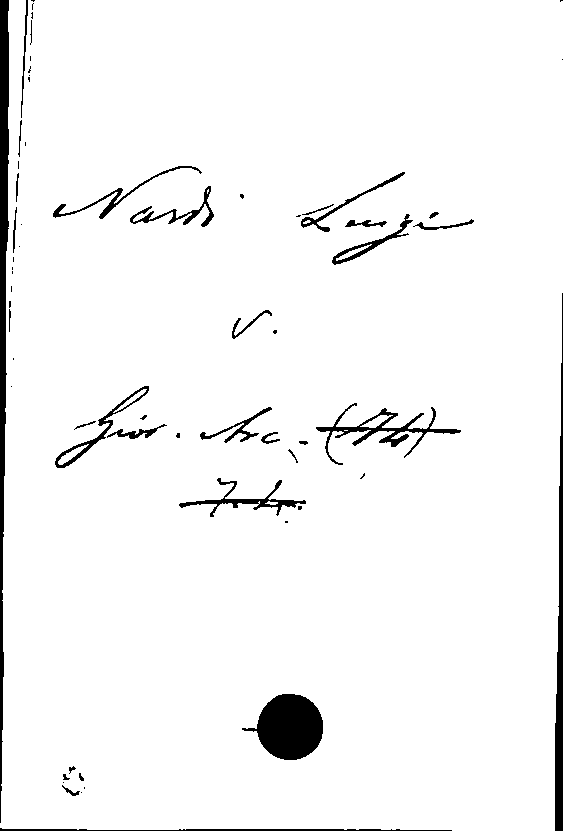 Nardi Luigi
v.
Gior. Arc. (74)
7.4.